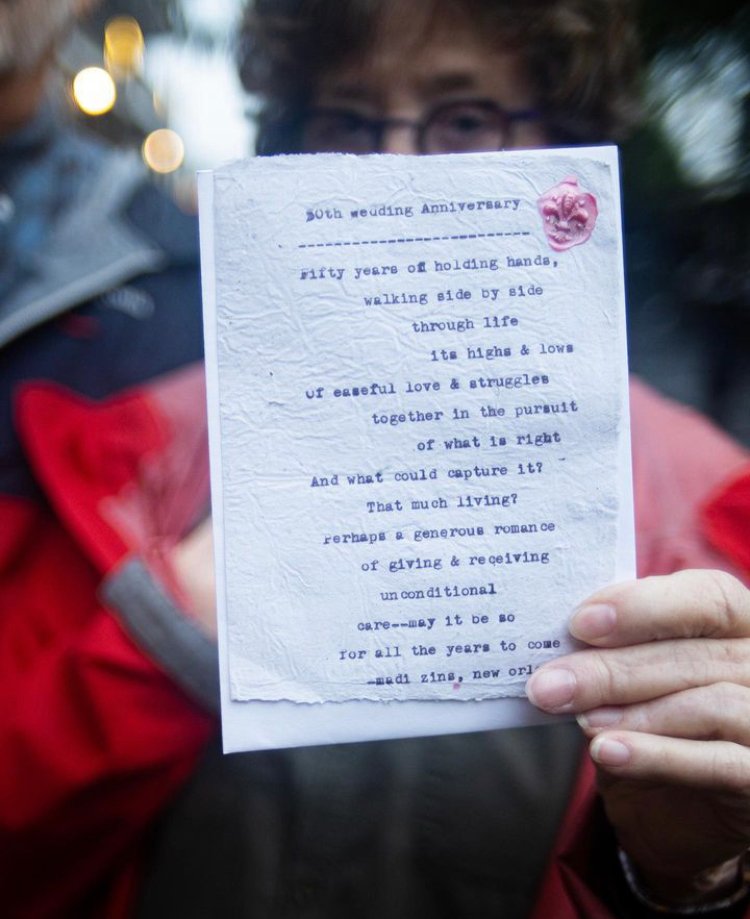 50th wedding Anniversary
------------------------------
Fifty years of holding hands,
walking side by side
through life
its highs & lows
Of easeful love & struggles
together in the pursuit
of what is right
And what could capture it?
That much living?
Perhaps a generous romance
of giving & receiving
unconditional
care--may it be so
for all the years to come
-madi zins, new